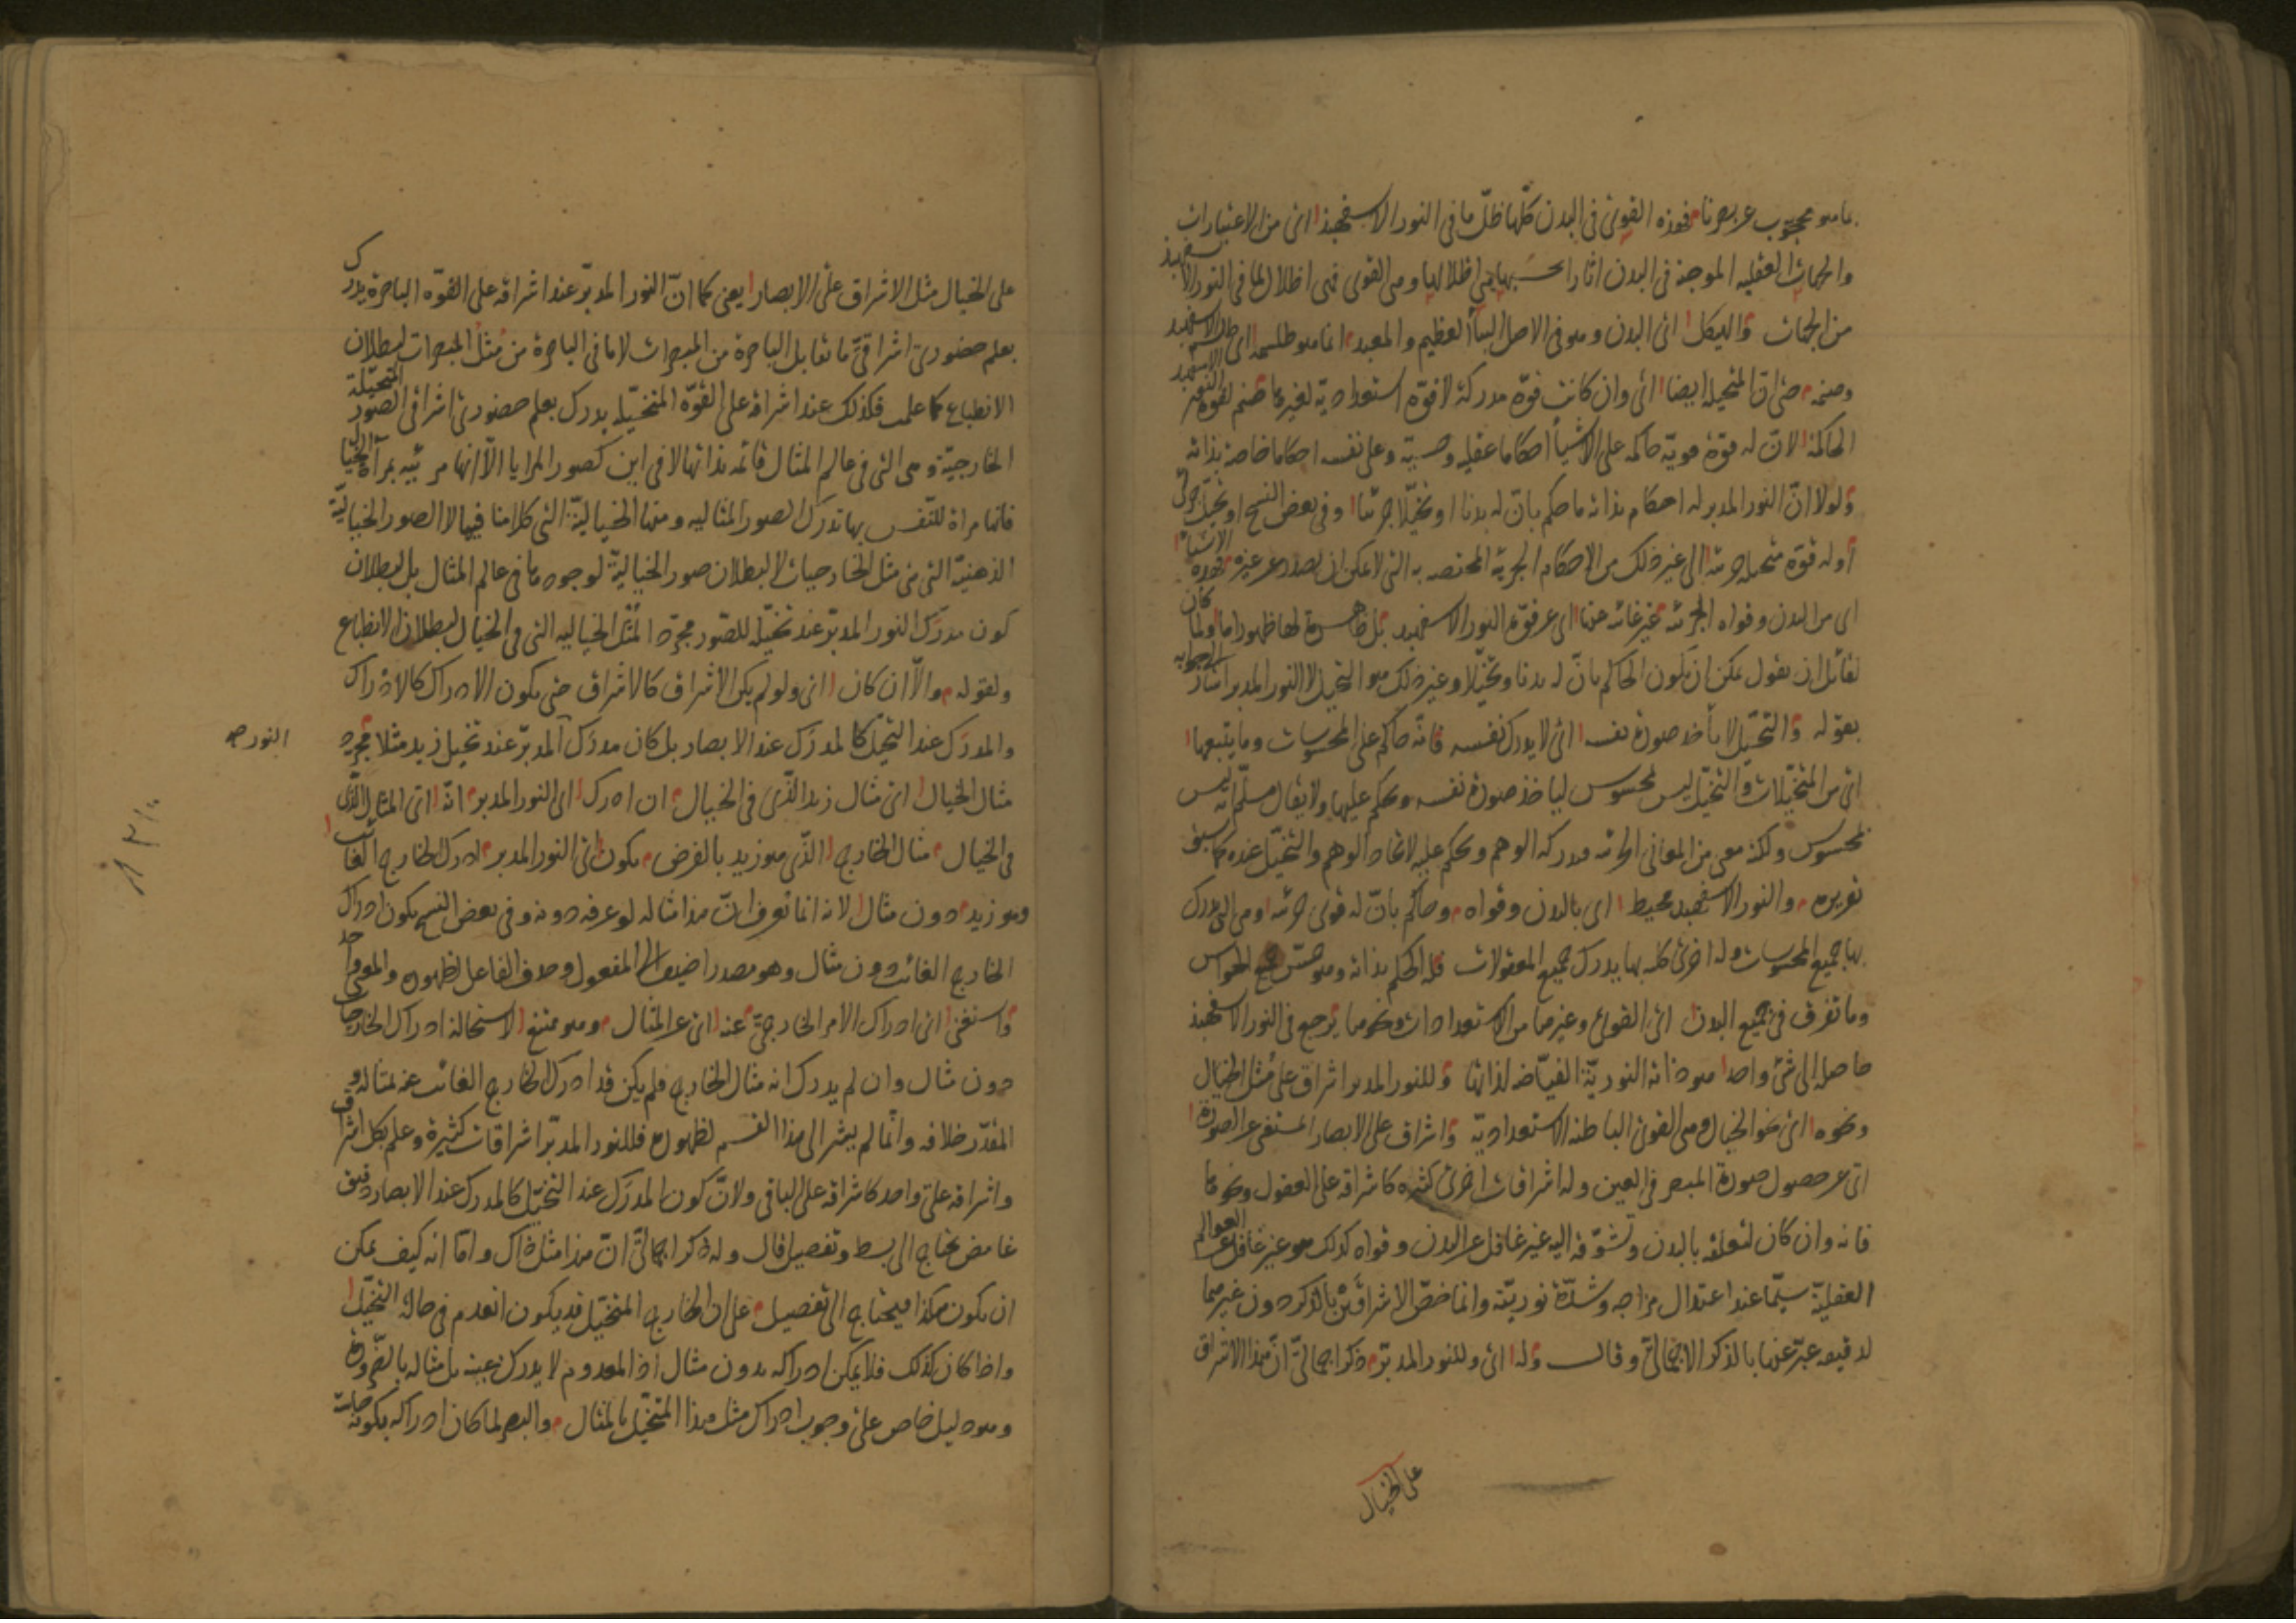 ما هو محجوب عن بصرنا فهذه القوى فى البدن كلّها ظلّ ما فى النور الاسفهبذ اى من الاعتبارات
والجهات العقليه الموجبة فى البدن اثارا بحسبها هى اظلالها وهى القوى فهى اظلال لما فى النور الاسفهبذ
من الجهات والهيكل اى البدن وهو فى الاصل البناء العظيم والمعبد انما هو طلسمه اى طلسم الاسفهبد
وصنمه حتى انّ المتخيله ايضا اى وان كانت قوّة مدركة لا قوّة استعدادية لغيرها صنم لقوة النور الاسفهبد
الحاكمة لانّ له قوّة هويّه حاكمه على الاشياء احكاما عقليه وحسيّه وعلى نفسه احكاما خاصة بذاته
ولولا انّ النور المدبر له احكام بذاته ما حكم بانّ له بدنا او تخيّلا جزئيا وفى بعض النسخ او تخيّل جزئى
او له قوّة متخيله جزئية الى غير ذلك من الاحكام الجزئيه المختصه به التى لا يمكن ان يصدر عن غيره فهذه الاشياء
اى من البدن وقواه الجزئيه غير غائبه عنها اى عن قوّة النور الاسفهبد بل ظاهرة لها ظهورا ما ولما كان
لقائل ان يقول يمكن ان يكون الحاكم بانّ له بدنا وتخيّلا وغير ذلك هو التخيل لا النور المدبر اشار الى جوابه
بقوله والتخيّل لا يأخذ صورة نفسه اى لا يدرك نفسه فانّه حاكم على المحسوسات وما يتبعها
اى من المتخيّلات والتخيّل ليس بمحسوس ليأخذ صورة نفسه ويحكم عليها ولا يقال مسلّم انّه ليس
بمحسوس ولكنه معنى من المعانى الجزئيه فيدركه الوهم ويحكم عليه لاتحاد الوهم والتخيّل عنده كما سبق
تقريره والنور الاسفهبد محيط اى بالبدن وقواه وحاكم بانّ له قوى جزئيه وهى التى يدرك
بها جميع المحسوسات وله اخرى كليه بها يدرك جميع المعقولات فله الحكم بذاته وهو حسّ جميع الحواس
وما تفرق فى جميع البدن اى القوى وغيرها من الاستعدادات ونحوها يرجع فى النور الاسفهبذ
حاصله الى شئ واحد هو ذاته النوريّة الفيّاضه لذاتها وللنور المدبر اشراق على مثل الخيال
ونحوه اى نحو الخيال وهى القوى الباطنه الاستعداديّه واشراق على الابصار المستغنى عن الصورة
اى عن حصول صورة المبصر فى العين وله اشراقات اخرى كثيره كاشراقه على العقول ونحوها
فانه وان كان لتعلقه بالبدن وتشوّقه اليه غير غافل عن البدن وقواه كذلك هو غير غافل عن العوالم
العقليّة سيّما عند اعتدال مزاجه وشدّة نوريّته وانما خصّ الاشراقَيْن بالذكر دون غيرهما
لدقيقه عبّر عنها بالذكر الاجمالىّ وقال وله اى وللنور المدبّر ذكر اجمالىّ انّ هذا الاشراق
على الخيال
على الخيال مثل الاشراق على الابصار يعنى كما انّ النور المدبّر عند اشراقه على القوّه الباصرة يدرك
بعلم حضورى اشراقىّ ما تقابل الباصرة من المبصرات لا ما فى الباصرة من مُثُل المبصرات لبطلان
الانطباع كما علمت فكذلك عند اشراقه على القوّه المتخيّله يدرك بعلم حضورىّ اشراقى الصور المتخيّلة
الخارجيّة وهى التى فى عالم المثال قائمه بذاتها لا فى اين كصور المرايا الّا انها مرئيّه بمرآة الخيال
فانها مراة للنّفس بها تدرك الصور المثاليه ومنها الخياليّة التى كلامنا فيها لا الصور الخياليّة
الذهنيّة التى هى مثل الخارجيات لا لبطلان صور الخياليّة لوجودها فى عالم المثال بل لبطلان
كون مدرَك النور المدبّر عند تخيّله للصّور مجرّد المُثُل الخياليه التى فى الخيال لبطلان الانطباع
ولقوله والّا ان كان اى ولو لم يكن الاشراق كالاشراق حتى يكون الادراك كالادراك
والمدرَك عند التخيّل كالمدرَك عند الابصار بل كان مدرَك المدبّر عند تخيل زيد مثلا مجرد
النور صح
مثال الخيال اى مثال زيد الذّى فى الخيال ان ادرك اى النور المدبر انّه اى المثال الذّى
فى الخيال مثال الخارج الذّى هو زيد بالفرض يكون اى النور المدبر ادرك الخارج الغائب
وهو زيد دون مثال لانه انما نعرف انّ هذا مثاله لو عرفه دونه وفى بعض النسخ يكون ادراك
الخارج الغائب دون مثال وهو مصدر اضيف الى المفعول وحذف الفاعل لظهوره والمعنى واحد
واستغنى اى ادراك الامر الخارجىّ عنه اى عن المثال وهو ممتنع لاستحالة ادراك الخارجيات
دون مثال وان لم يدرك انه مثال الخارج فلم يكن قد ادرك الخارج الغائب عنه بمثاله و
المقدّر خلافه وانّما لم يشر الى هذا القسم لظهوره فللنور المدبّر اشراقات كثيرة وعلم بكل اشراق
واشراقه على واحد كاشراقه على الباقى ولانّ كون المدرَك عند التخيّل كالمدرك عند الابصار دقيق
غامض يحتاج الى بسط وتفصيل قال وله ذكر اجمالىّ انّ هذا مثل ذاك واما انه كيف يمكن
ان يكون هكذا فيحتاج الى تفصيل على ان الخارج المتخيّل قد يكون انعدم فى حالة التخيّل
واذا كان كذلك فلا يمكن ادراكه بدون مثال اذ المعدوم لا يدرك بعينه بل بمثاله بالضّرورة
وهو دليل خاص على وجوب ادراك مثل هذا المتخيّل بالمثال والبصر لما كان ادراكه بكونه